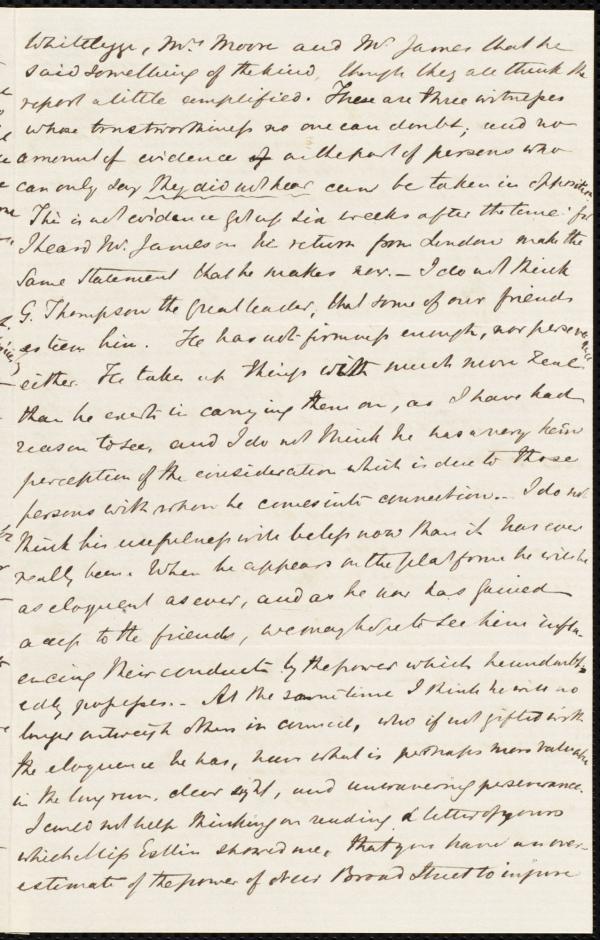 Whitelegge, Mrs Moore and Mr James that he
said something of the kind, though they all think the
report a little amplified. These are three witnesses
whose trustworthiness no one can doubt; and no
amount of evidence on the part of persons who
can only say they did not hear can be taken in opposition
This is not evidence got up six weeks after the time: for
I heard Mr. James on his return from London make the
same statement that he makes now. — I do not think
G. Thompson the great leader, that some of our friends
esteem him. He has not firmness enough, nor perseverance
either. He takes up things with much more zeal
than he exerts in carrying them on, as I have had
reason to see, and I do not think he has a very keen
perception of the consideration which is due to those
persons with whom he comes into connection. — I do not
think his usefulness will be less now than it has ever
really been. When he appears on the platform he will be
as eloquent as ever, and as he now has gained
access to the friends, we may hope to see him influ-
encing their conduct by the power which he undoubt-
edly possesses. — At the same time I think he will no
longer outweigh others in council, who if not gifted with
the eloquence he has, have what is perhaps more valuable
in the long run, clear sight, and unwavering perseverance.
I could not help thinking on reading a letter of yours
which Miss Estlin showed me, that you have an over-
estimate of the power of New Broad Street to injure